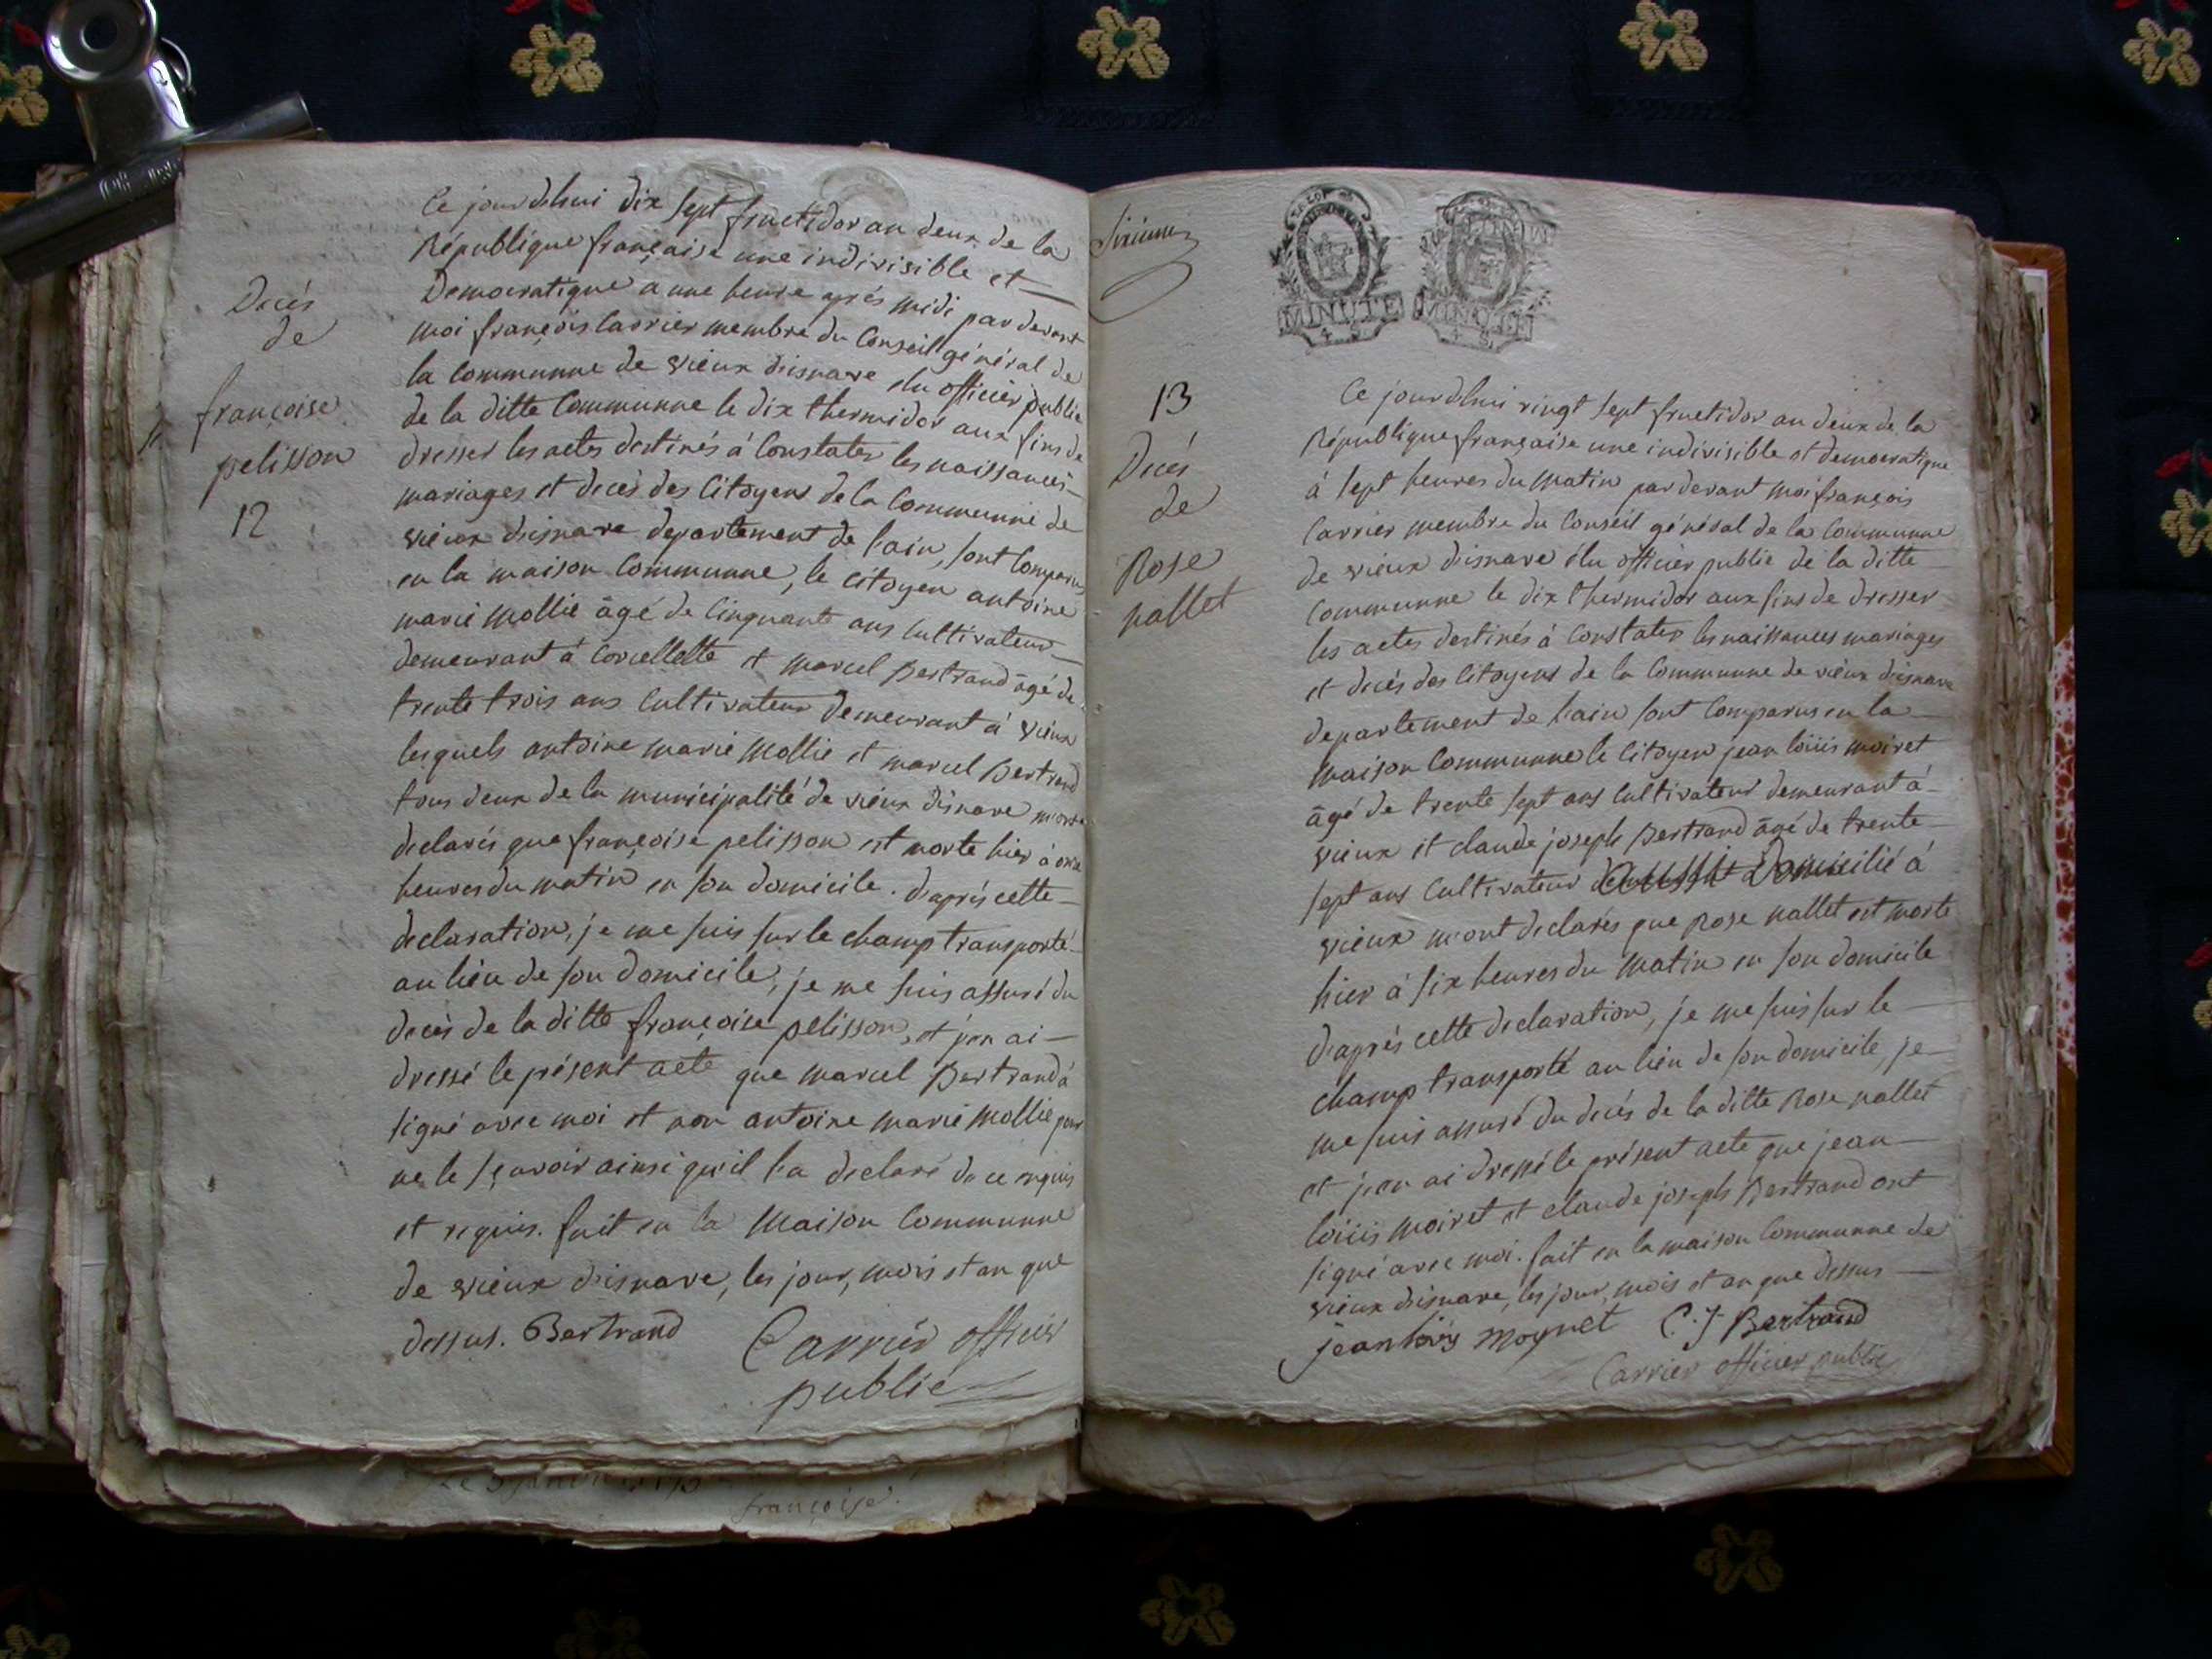 Ce jourdhui dix sept fructidor an deux de la
République française une indivisible et
Democratique a une heure après midi par devant
moi françois Carrier membre du Conseil général de
la Communne de vieux disnave elu officier public
de la ditte Communne le dix thermidor aux fins de
dresser les actes destinés à Constater les naissances
mariages et decès des Citoyens de la Communne de
vieux d'isnave departement de l'ain, sont Comparus
en la maison Communne, le citoyen antoine
marie Mollie âgé de Cinquante ans cultivateur
demeurant à Corcellette et marcel Bertrand âgé de
trente trois ans Cultivateur demeurant à vieux
lesquels antoine marie Mollie et marcel Bertrand
tous deux de la municipalité de vieux d'isnave m'ont
declarés que françoise pelisson est morte hier à onze
heures du matin en son domicile. d'après cette
declaration, je me suis sur le champ transporté
au lieu de son domicile, je me suis assuré du
decès de la ditte françoise pelisson, et j'en ai
dressé le présent acte que marcel Bertrand à
signé avec moi et non antoine marie Mollie pour
ne le sçavoir ainsi qu'il l'a declaré de ce enquis
et requis. fait en la Maison Communne
de vieux d'isnave, les jour, mois et an que
dessus. Bertrand Carrier officier
public
Decés
de
françoise
pelisson
12
françoise.
Sixieme
MINUTE
MINUTE
13
Decés
de
Rose
nallet
Ce jourdhui vingt sept fructidor an deux de la
République française une indivisible et democratique
à sept heures du matin par devant moi françois
Carrier membre du Conseil général de la Communne
de vieux d'isnave élu officier public de la ditte
Communne le dix thermidor aux fins de dresser
les actes destinés à Constater les naissances mariages
et decés des Citoyens de la Communne de vieux d'isnave
departement de l'ain sont Comparus en la
maison Communne le Citoyen jean loüis moiret
âgé de trente sept ans Cultivateur demeurant à
vieux et claude joseph Bertrand âgé de trente
sept ans Cultivateur aussi Domicilié à
vieux m'ont declarés que Rose nallet est morte
hier à six heures du matin en son domicile
d'après cette declaration, je me suis sur le
champ transporté au lieu de son domicile, je
me suis assuré du decés de la ditte Rose nallet
et j'en ai dressé le présent acte que jean
loüis moiret et claude joseph Bertrand ont
signé avec moi. fait en la maison Communne de
vieux d'isnave, les jour, mois et an que dessus
jean loüis moynet C. J Bertrand
Carrier officier public